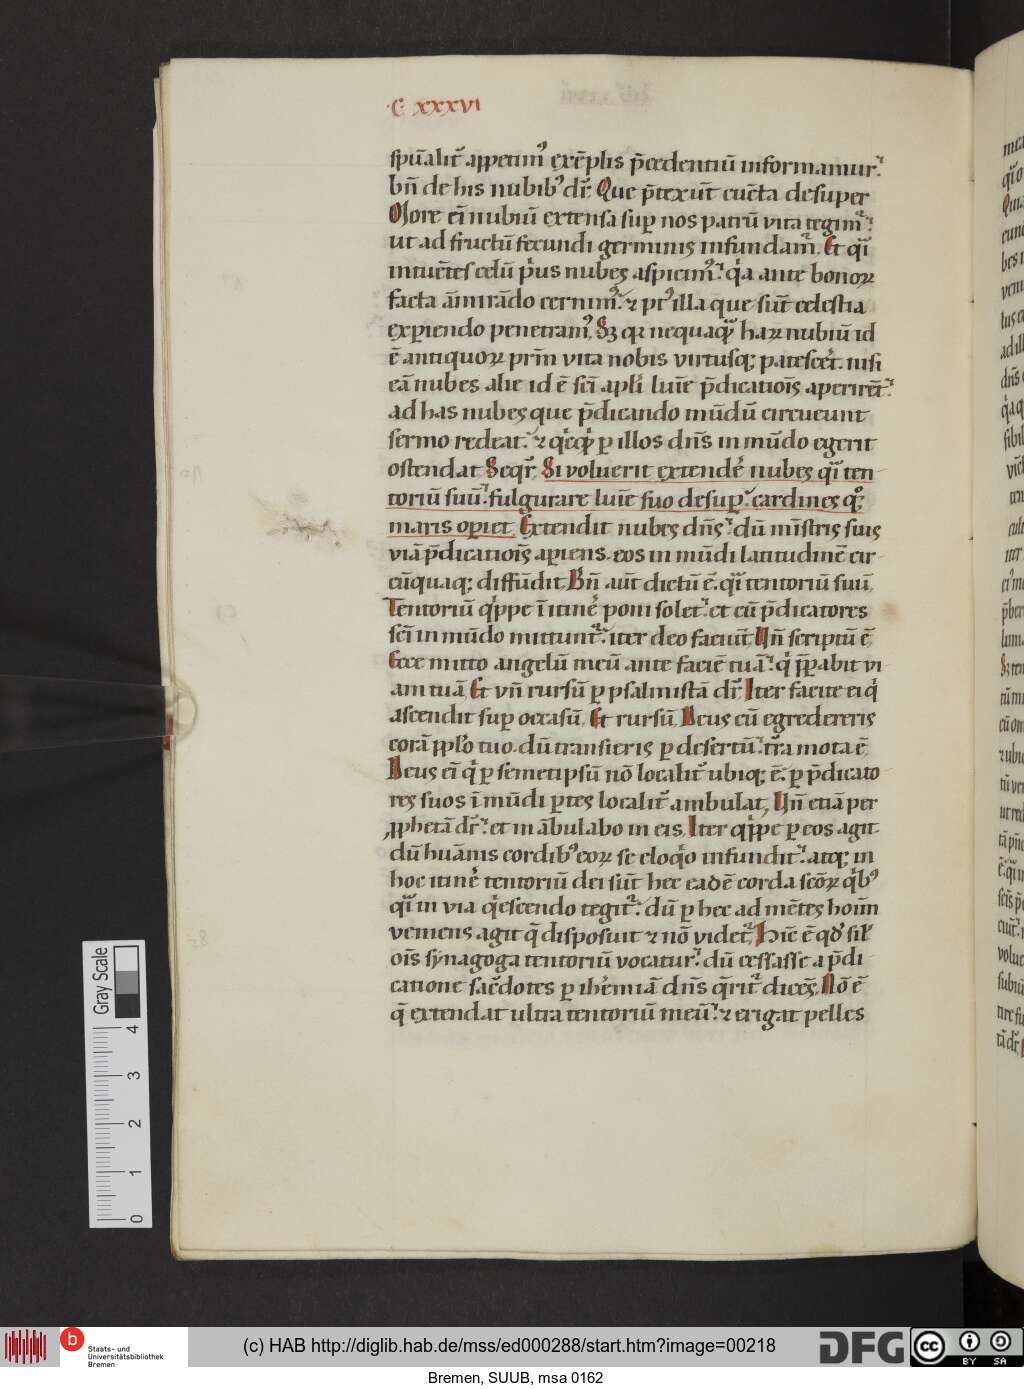 C xxxvi
spūalit᷑ appetim᷒ exēplis p̄cedentiū informamur.
bn̄ de his nubib᷒ dr᷑. Que p̄texūt cūcta desuper
More ei̅ nubiū extensa sup̱ nos patrū vita tegim᷑.
ut ad fructū fecundi germinis infundam᷑. Et qͣi
intuētes celū pͥus nubes aspicim᷒. qͥa ante bonoꝝ
facta āmirādo cernim᷒. ⁊ pt᷒ illa que sūt celestia
exp̱iendo penetram᷒. Sꝫ qꝛ nequaqͣ haꝝ nubiū id
ē antiquoꝝ prm̄ vita nobis virtusq; patesc̄et. nisi
eā nubes alie id ē sc̄i apl̓i luīe p̄dicatiōis aperirēt.
ad has nubes que p̄dicando mūdū circueunt
sermo redeat. ⁊ qͥcqͥd p̱ illos dn̄s in mūdo egerit
ostendat Seqr᷑. Si voluerit extende̓ nubes qͣi ten
toriū suū. fulgurare luīe suo desup̱. cardines qͦ;
maris op̱iet. Extendit nubes dn̄s. dū mīstris suis
viā p̄dicatiōis ap̱iens. eos in mūdi latitudinē cir
cūquaq; diffūdit Bn̄ aūt dictū ē. qͣi tentoriū suū.
Tentoriū qͥppe ī itine̓ poni solet. et cū p̄dicatores
sc̄i in mūdo mittunt᷑. iter deo faciūt Un̄ scriptū ē
Ecce mitto angelū meū ante faciē tuā. qͥ p̄parabit vi
am tuā. Et vn̄ rursū p̱ psalmistā dr᷑. Iter facite ei qͥ
ascendit sup̱ occasū. Et rursū. Deus cū egredereris
corā ꝓplo tuo. dū transieris p̱ desertū. tr̄a mota ē
Deus ei̅ qͥ p̱ semetipsū nō localit᷑ ubiq; ē. p̱ p̄dicato
res suos ī mūdi p̱tes localit᷑ ambulat. Un̄ etiā per
ꝓphetā dr᷑. et in ābulabo in eis. Iter qͥppe p̱ eos agit
dū hūanis cordib᷒ eoꝝ se eloqͦo infundit. atq; in
hoc itine̓ tentoriū dei sūt hec eadē corda sc̄oꝝ qͥb᷒
qͣi in via qͥescendo tegit᷑. dū p̱ hec ad mētes hoīm
veniens agit q̄ disposuit ⁊ nō videt᷑. Hīc ē qđ sil̓
oīs synagoga tentoriū vocatur. dū cessasse a p̄di
catione sac̄dotes p̱ ihe̓miā dn̄s q̄rit᷑ dicēs. Nō ē
q̄ extendat ultra tentoriū meū. ⁊ erigat pelles
Gray Scale
4
3
2
1
0
b
Staats- und
Universitätsbibliothek
Bremen
(c) HAB http://diglib.hab.de/mss/ed000288/start.htm?image=00218
DFG
cc
BY SA
Bremen, SUUB, msa 0162